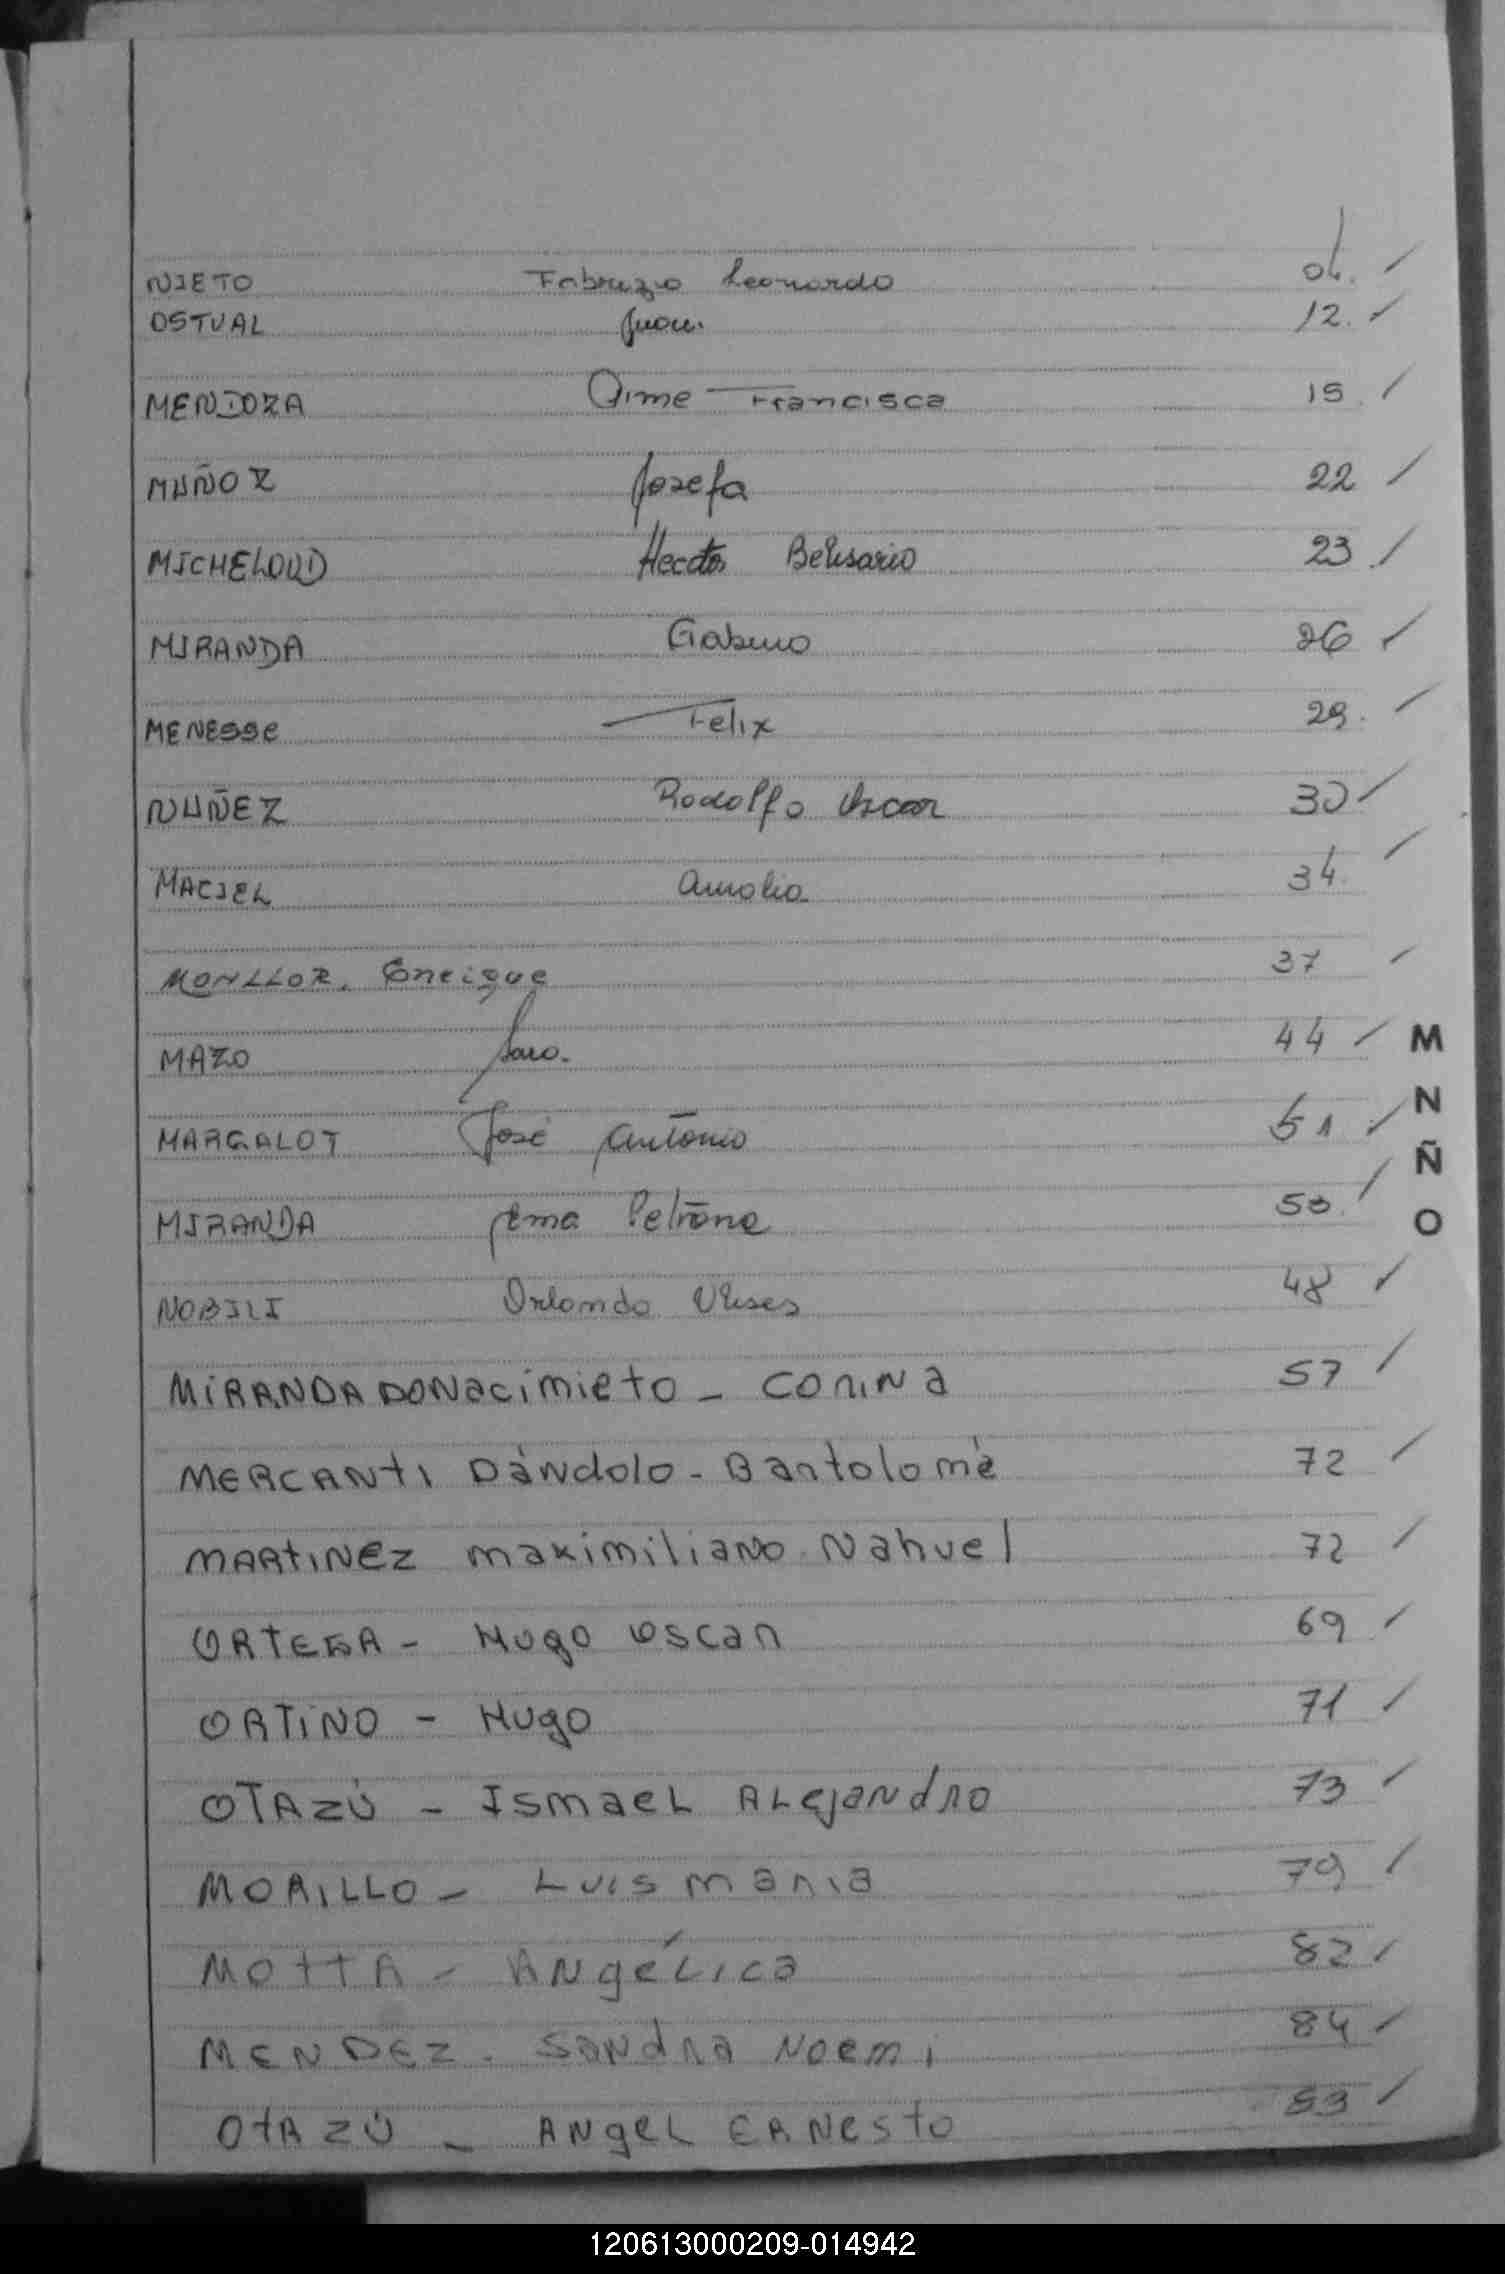 NIETO Fabrizio Leonardo 04. ✓
OSTUAL Juan. 12. ✓
MENDOZA Aime Francisca 15. ✓
MUÑOZ Josefa 22 ✓
MICHELOUD Hector Belisario 23 ✓
MIRANDA Gabino 26 ✓
MENESSE Felix 29. ✓
NUÑEZ Rodolfo Oscar 30 ✓
MACIEL Amalia 34. ✓
MONLLOR. Enrique 37 ✓
MAZO Sara. 44 ✓
M
MARGALOT José Antonio 51 ✓
N
Ñ
MIRANDA Ema Petrona 50. ✓
O
NOBILI Orlando Ulises 48 ✓
MIRANDA DONACIMIETO - CORINA 57 ✓
MERCANTI DÁNDOLO - Bartolomé 72 ✓
MARTINEZ maximiliano Nahuel 72 ✓
ORTEGA - Hugo oscar 69 ✓
ORTINO - Hugo 71 ✓
OTAZÚ - ISmaEL ALejandro 73 ✓
MORILLO - Luis maria 79 ✓
MOTTA - ANgéLica 82 ✓
MENDEZ - Sandra Noemi 84 ✓
OTAZÚ - ANgEL ERNesto 83 ✓
120613000209-014942